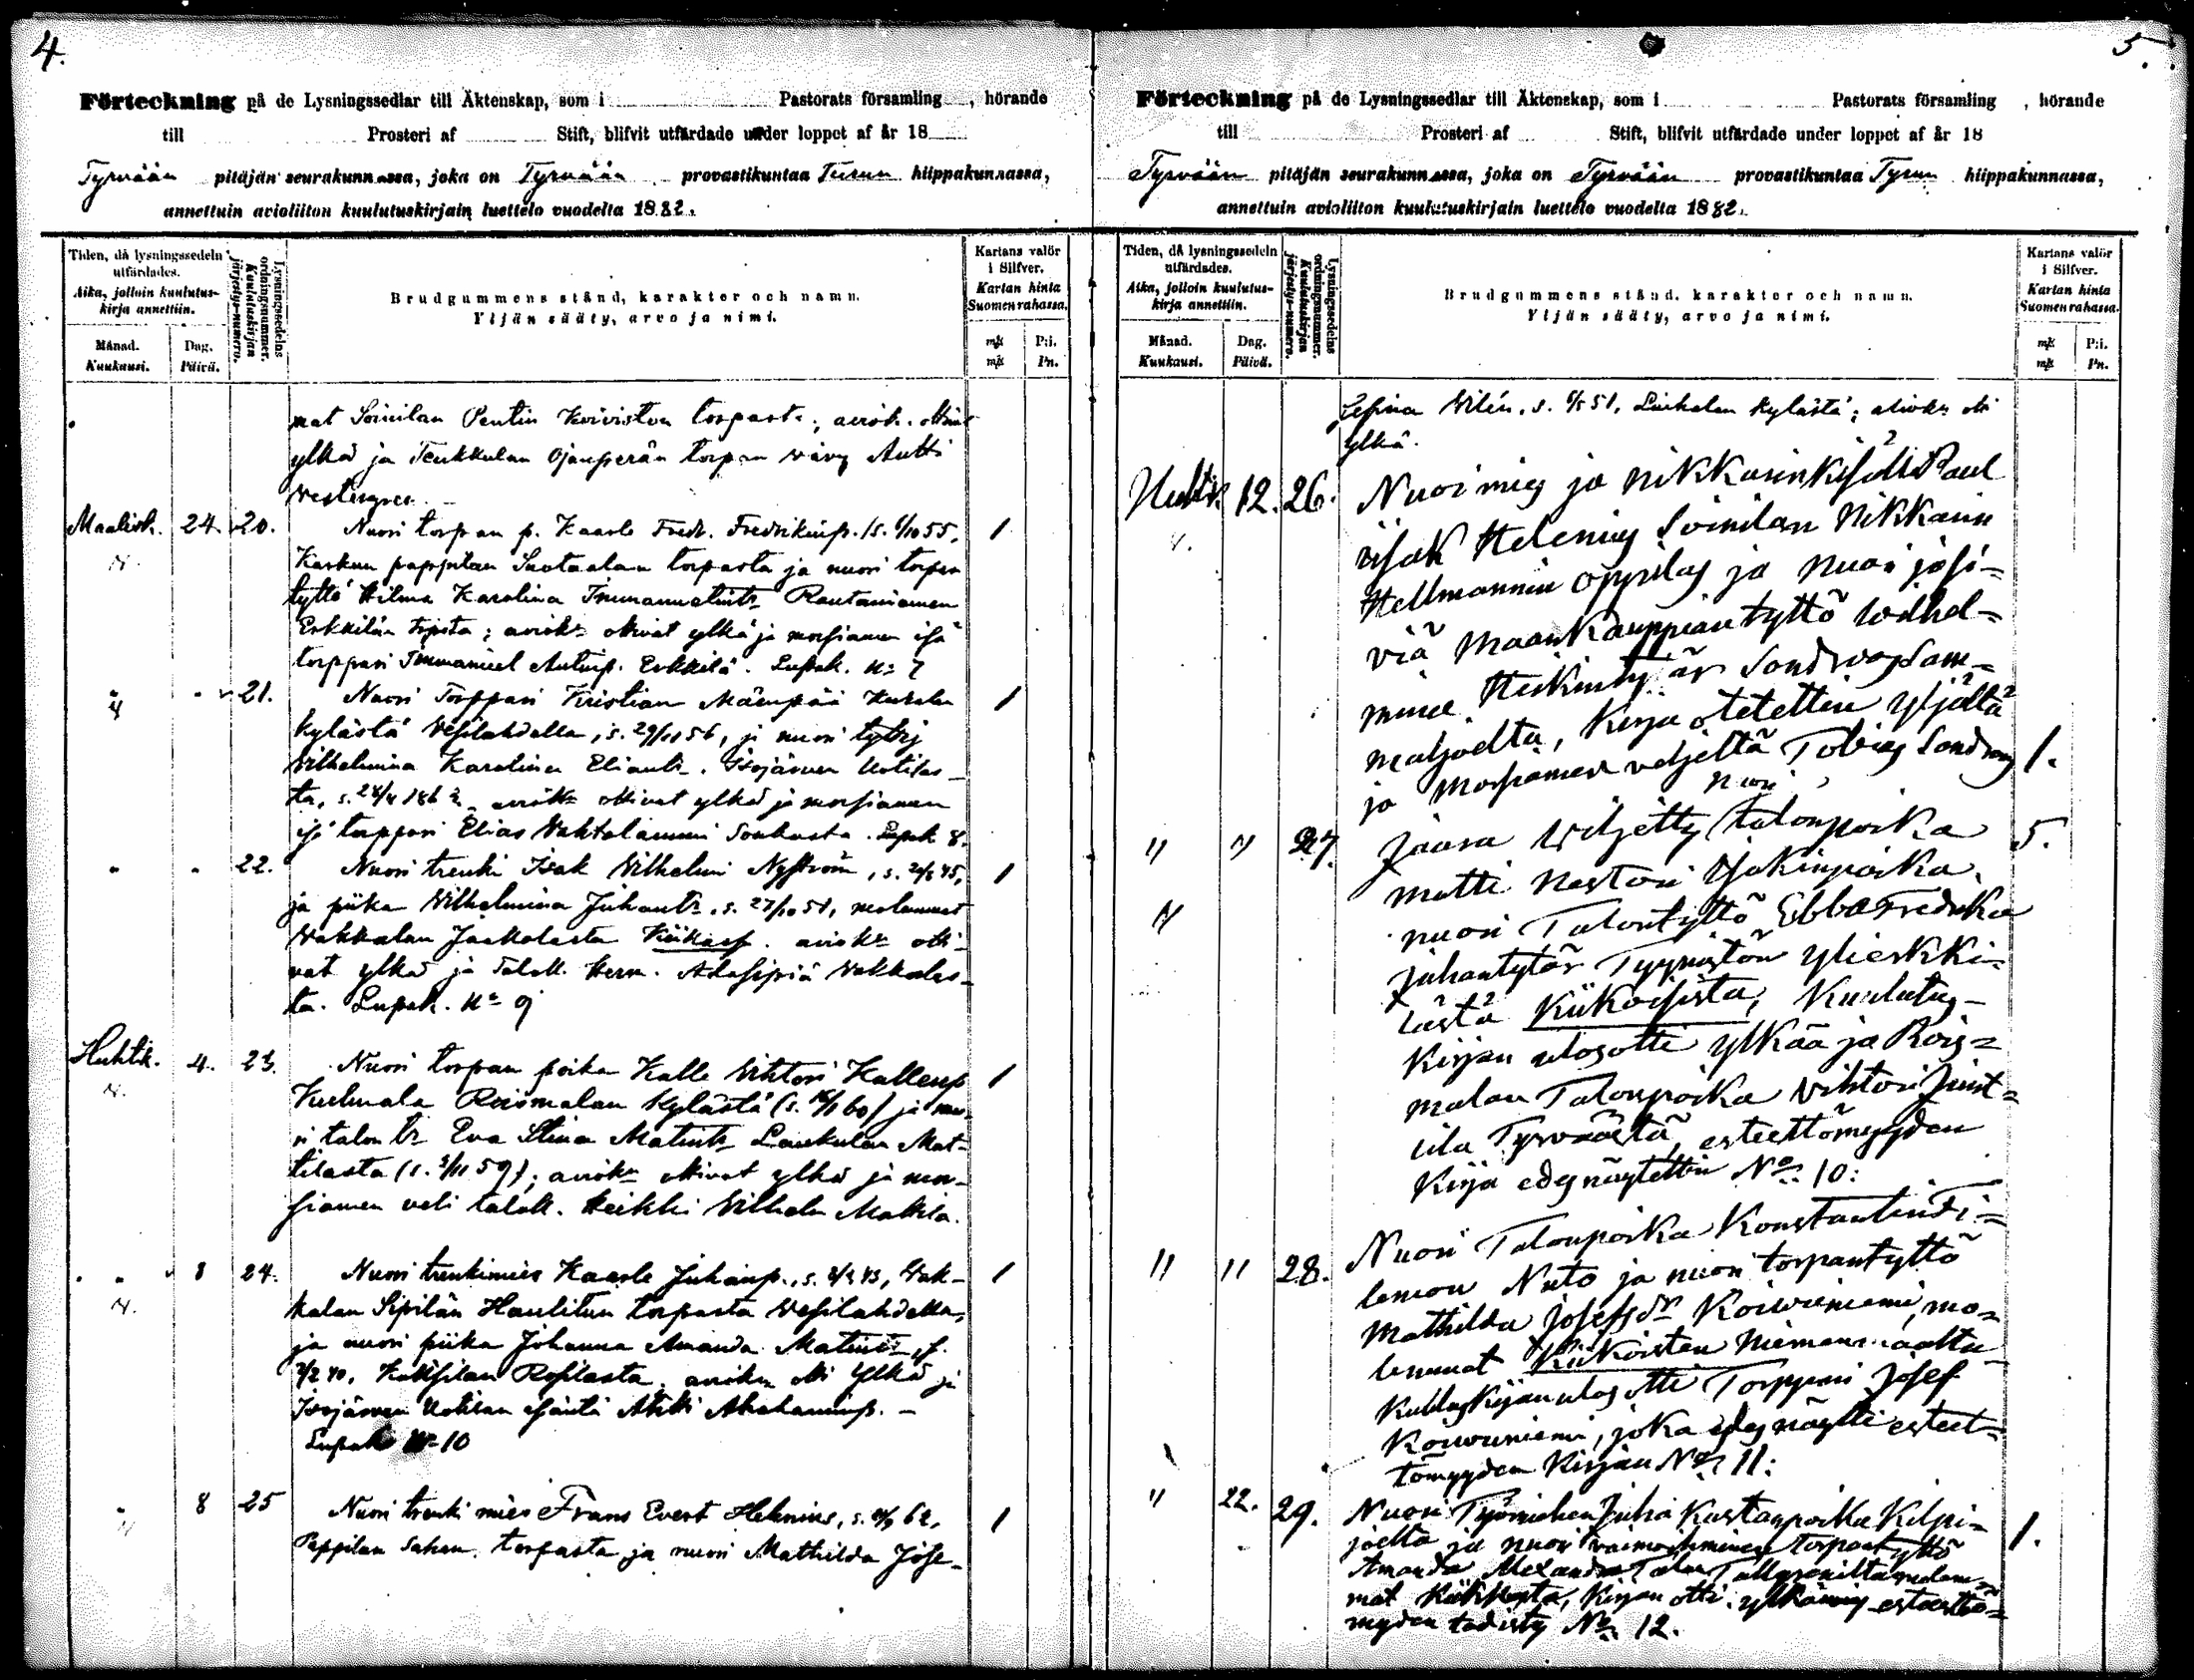 4.
Förteckning på de Lysningssedlar till Äktenskap, som i Pastorats församling , hörande
till Prosteri af Stift, blifvit utfärdade under loppet af år 18
Tyrvään pitäjän seurakunnassa, joka on Tyrvään provastikuntaa Turun hiippakunnassa,
annettuin avioliiton kuulutuskirjain luettelo vuodelta 1882.
Tiden, då lysningssedeln utfärdades.
Aika, jolloin kuulutus-
kirja annettiin.
Månad.
Kuukausi.
Dag.
Päivä.
Lysningssedelns ordningsnummer.
Kuulutuskirjan järjestys-numero.
Brudgummens stånd, karakter och namn.
Yljän sääty, arvo ja nimi.
Kartans valör
i Silfver.
Kartan hinta
Suomen rahassa.
mk P:i.
mk Pn.
mat Soinilan Pentin Koiviston torpasta; aviok. ottivat
ylkä ja Teukkulan Ojanperän torpan vävy Antti
Westergren.
Maalisk. 24. 20. Nuori torpan p. Kaarle Fredr. Fredrikinp. (s. 6/10 55, 1
Karkun pappilan Suotaalan torpasta ja nuori torpan
tyttö Hilma Karolina Immanuelintr Rautaniemen
Erkkilän torpsta; aviokr ottivat ylkä ja morsiamen isä
torppari Immanuel Antinp. Erkkilä. Lupak. No 7
" " 21. Nuori Torppari Kristian Mäenpää Kurala 1
kylästä Vesilahdella, s. 29/11 56, ja nuori
Vilhelmina Karolina Eliantr. Isojärven Uotilas-
ta, s. 28/4 186 aviokr ottivat ylkä ja morsiamen
isä torppari Elias Vahtolammi Lupak 8.
" " 22. Nuori trenki Isak Vilhelmi Nyström, s. 45, 1
ja piika Vilhelmina Juhantr. s. 27/10 51, molemmat
Vakkalan Jaakolasta Kiikass. aviokr otti-
vat ylkä ja talok. Herm. Vakkalas-
ta. Lupak. No 9
Huhtik. 4. 23. Nuori torpan poika Kalle Vihtori Kallenp 1
Kulmala Roismalan kylästä (s. 60) ja nuo-
ri talon tr Eva Stina Matintr Laukulan Mat-
tilasta (s. 59); aviokr ottivat ylkä ja mor-
siamen veli talok. Heikki Vilhelm Mattila.
" 8 24. Nuori trenkimies Kaarle Juhanp., s. 43, Vak- 1
kalan Sipilän Haulitun torpasta Vesilahdella,
ja nuori piika Johanna Amanda Matintr, s.
40, Rosilasta. aviokr otti Ylkä ja
Isojärven Uotilan isäntä Antti Abrahaminp. –
Lupak No 10
" 8 25 Nuori trenki mies Frans Evert Helenius, s. 62, 1
Pappilan Sahan torpasta ja nuori Mathilda Jose-
5.
Förteckning på de Lysningssedlar till Äktenskap, som i Pastorats församling , hörande
till Prosteri af Stift, blifvit utfärdade under loppet af år 18
Tyrvään pitäjän seurakunnassa, joka on Tyrvään provastikuntaa Turun hiippakunnassa,
annettuin avioliiton kuulutuskirjain luettelo vuodelta 1882.
Tiden, då lysningssedeln utfärdades.
Aika, jolloin kuulutus-
kirja annettiin.
Månad.
Kuukausi.
Dag.
Päivä.
Lysningssedelns ordningsnummer.
Kuulutuskirjan järjestys-numero.
Brudgummens stånd, karakter och namn.
Yljän sääty, arvo ja nimi.
Kartans valör
i Silfver.
Kartan hinta
Suomen rahassa.
mk P:i.
mk Pn.
sefina Vilén, s. 51, Liuhalan kylästä; aviokr otti
ylkä.
Huhtik. 12. 26. Nuori mies ja nikkarinkisälli Paul
Isak Helenius Soinilan Nikkarin
Hellmannin oppilas ja nuori
Maankauppiantyttö Wilhel-
mina Heikintytär Sandroos Sam-
maljoelta, kirja otetettiin yljältä
ja morsiamen veljeltä Tobias Sandroos 1.
" " 27. Jaara viljelty nuori talonpoika 5.
Matti Nestori Isakinpoika,
nuori Talontyttö Ebba Fredrika
Juhantytär Tyynistön Ylieskki-
lästä Kiikoisista, Kuulutus-
kirjan ulos otti ylkää ja Rois-
malan Talonpoika Vihtori Junt-
tila Tyrväästä, esteettömyyden
kirja edesnäytettiin No 10:
" 11 28. Nuori Talonpoika Konstantin
Nuto ja nuori torpantyttö
Mathilda Josefsdr Koivuniemi, mo-
lemmat Kiikoisten Niemenmaalta
kirjan ulos otti Torppari Josef
Koivuniemi, joka edes näytti esteet-
tömyyden kirjan No 11:
" 22. 29. Nuori Työmiehen Juha Kustanpoika Kilpi- 1.
joelta ja nuori vaimoihminen torpantyttö
Amanda Alexandra
mat Kiikkasta, kirjan otti ylkämies esteettö-
myden todisty No 12.